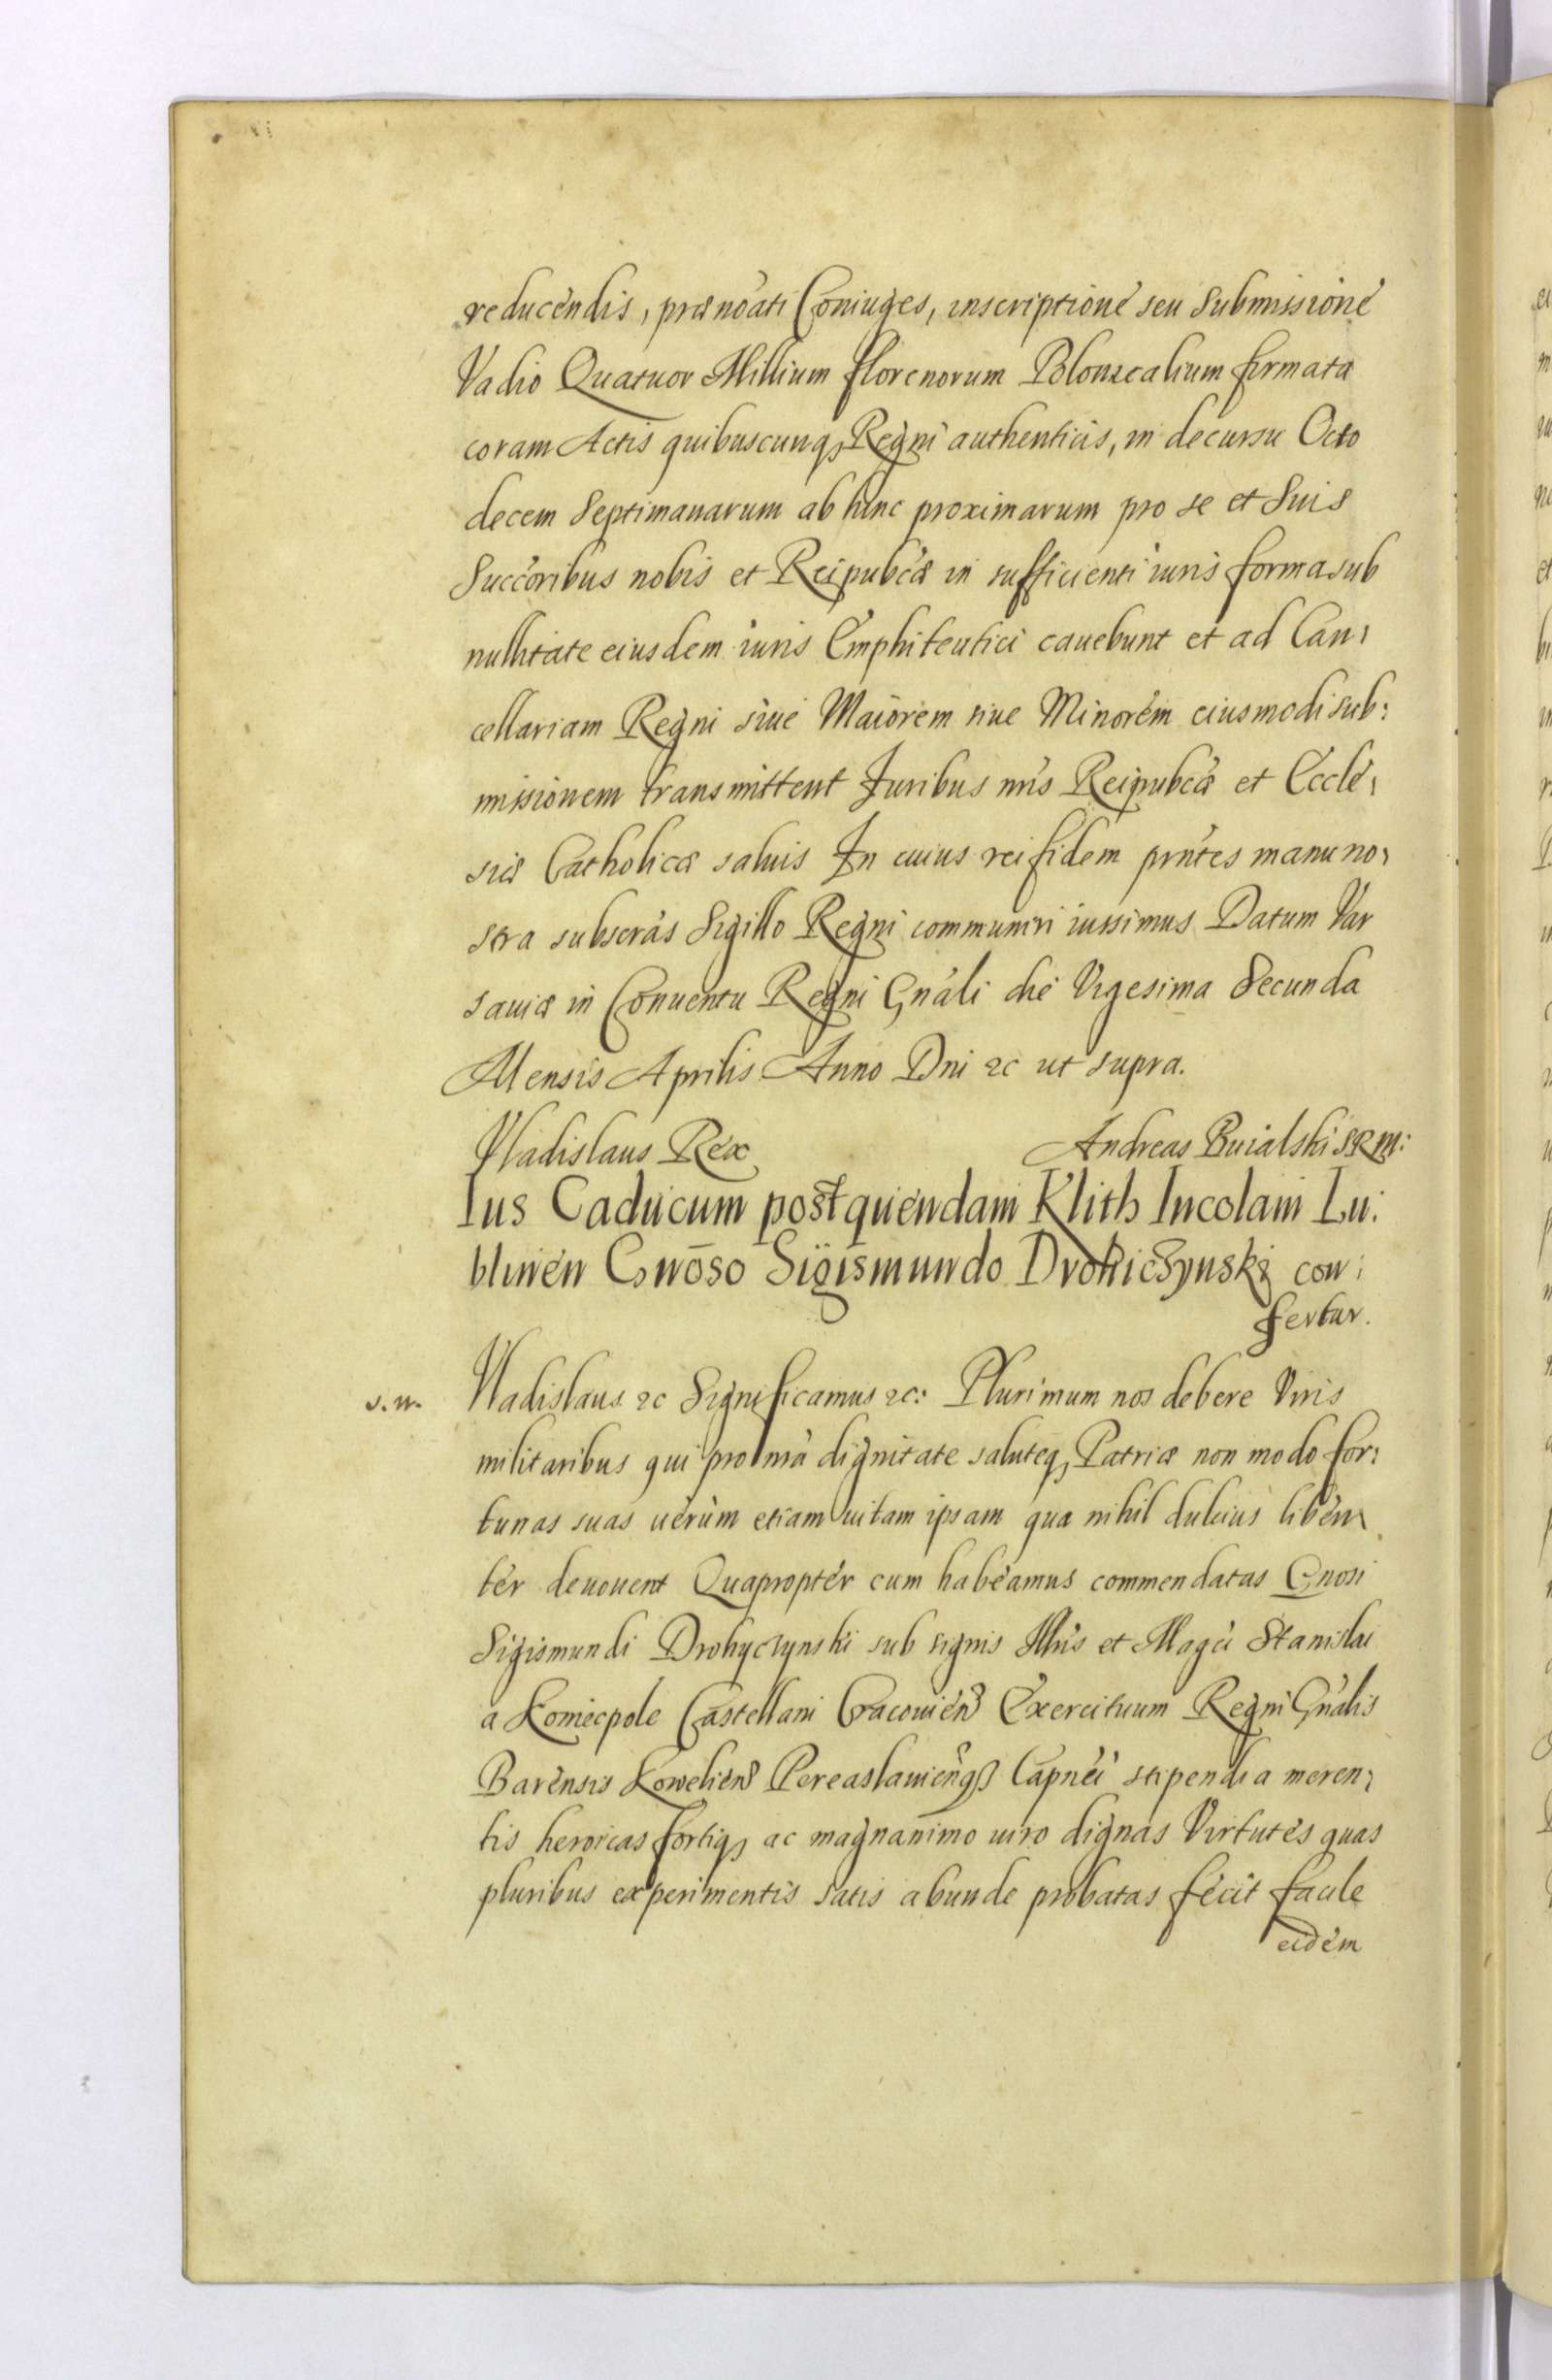 reducendis, prænoati Coniuges, inscriptione seu submissione
Vadio Quatuor Millium florenorum Polonicalium firmata
coram Actis quibuscunq Regni authenticis, in decursu Octo
decem Septimanarum ab hinc proximarum pro se et Suis
Succoribus nobis et Reipubcæ in sufficienti iuris forma sub
nullitate eiusdem iuris Emphiteutici cauebunt et ad Can:
cellariam Regni siue Maiorem siue Minorem eiusmodi sub:
missionem transmittent Juribus nris Reipubcæ et Eccle:
siæ Catholicæ saluis In cuius rei fidem prntes manu no:
stra subscras Sigillo Regni communiri iussimus Datum Var
sauiæ in Conuentu Regni Gnali die Vigesima Secunda
Mensis Aprilis Anno Dni 2c ut supra.
Vladislaus Rex Andreas Buialski SRM:
Ius Caducum post quendam Klith Incolam Lu:
blinen Gnōso Sigismundo Drohiczynski con:
fertur.
s. n. Vladislaus 2c Significamus 2c: Plurimum nos debere Viris
militaribus qui pro nra dignitate saluteq Patriæ non modo for:
tunas suas uerùm etiam uitam ipsam qua nihil dulcius liben
ter deuouent Quapropter cum habeamus commendatas Gnosi
Sigismundi Drohyczynski sub signis Illris et Magci Stanislai
a Koniecpole Castellani Cracouien Exercituum Regni Gnalis
Barensis Kowelien Pereaslauienq Capnei stipendia meren:
tis heroicas fortiq ac magnanimo uiro dignas Virtutes quas
pluribus experimentis satis abunde probatas fecit facile
eidem